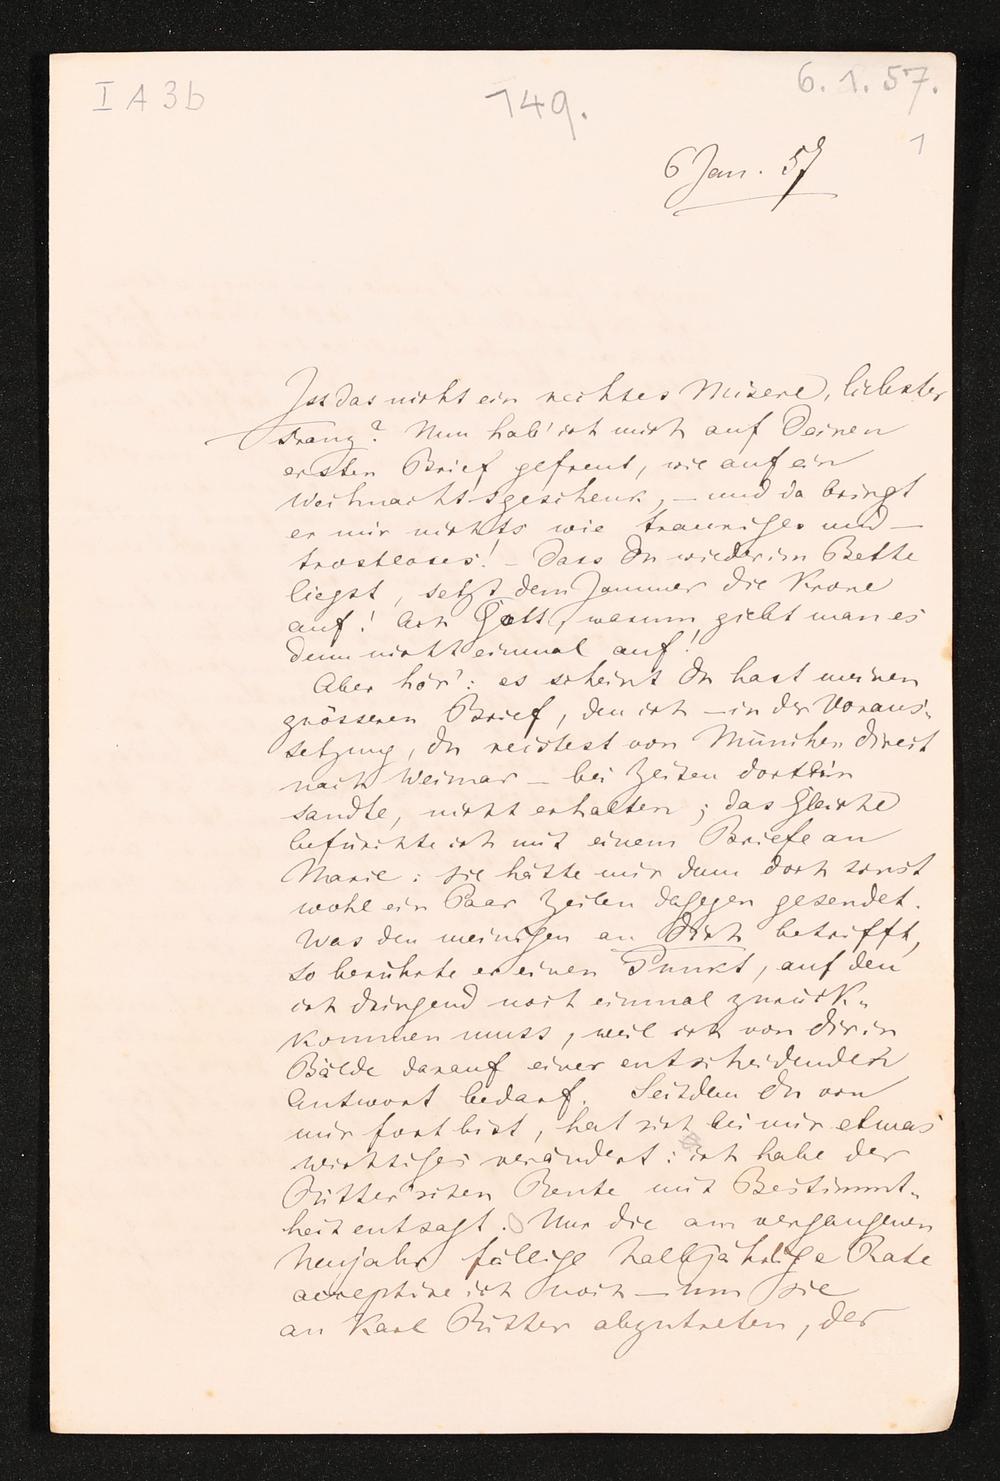 I A 3b
149.
6. 1. 57.
1
6 Jan. 57
Ist das nicht ein rechtes Misere, liebster
Franz? Nun hab' ich mich auf Deinen
ersten Brief gefreut, wie auf ein
Weihnachtsgeschenk, – und da bringt
er mir nichts wie trauriges und –
trostloses! – Dass Du wieder im Bette
liegst, setzt dem Jammer die Krone
auf! Ach Gott, warum giebt man es
denn nicht einmal auf!
Aber hör': es scheint Du hast meinen
grösseren Brief, den ich – in der Voraus-
setzung, du reistest von München direct
nach Weimar – bei Zeiten dorthin
sandte, nicht erhalten; das Gleiche
befürchte ich mit einem Briefe an
Marie: sie hätte mir dann doch sonst
wohl ein Paar Zeilen dagegen gesendet.
Was den meinigen an Dich betrifft,
so berührte er einen Punkt, auf den
ich dringend noch einmal zurück-
kommen muss, weil ich von dir in
Bälde darauf einer entscheidenden
Antwort bedarf. Seitdem du von
mir fort bist, hat sich bei mir etwas
wichtiges verändert: ich habe der
Ritter'schen Rente mit Bestimmt-
heit entsagt. Nur die am vergangenen
Neujahr fällige halbjährige Rate
acceptire ich noch – um sie
an Karl Ritter abzutreten, der